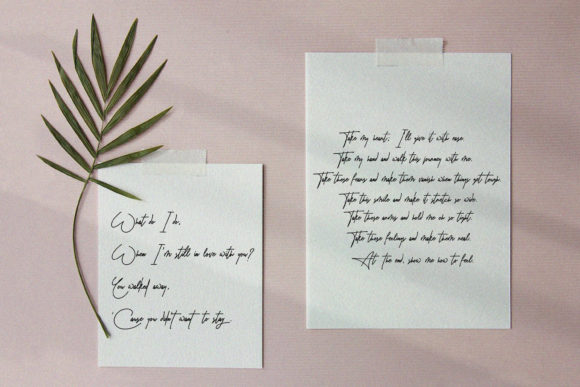 What do I do,
When I'm still in love with you?
You walked away,
'Cause you didn't want to stay...
Take my heart; I'll give it with ease.
Take my hand and walk this journey with me.
Take these fears and make them vanish when things get tough.
Take this smile and make it stretch so wide.
Take these arms and hold me oh so tight.
Take these feelings and make them real.
At the end, show me how to feel.